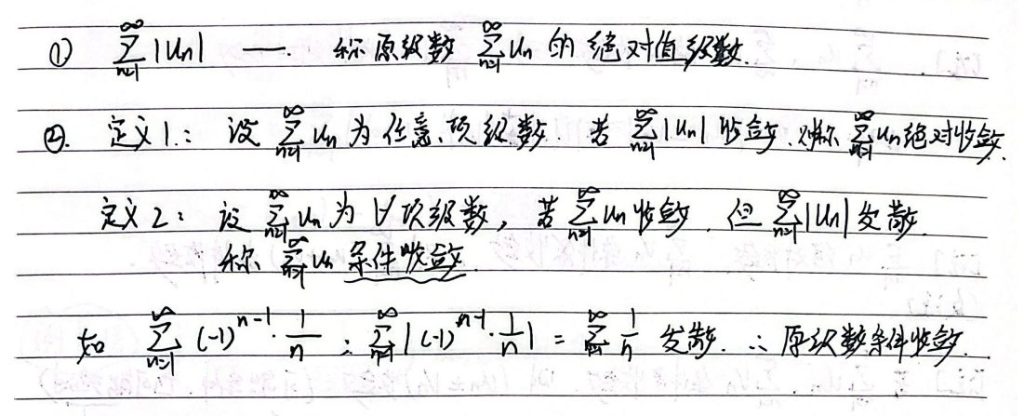 ① $\sum_{n=1}^{\infty} |u_n|$ —. 称原级数 $\sum_{n=1}^{\infty} u_n$ 的绝对值级数.
②. 定义1.: 设 $\sum_{n=1}^{\infty} u_n$ 为任意项级数. 若 $\sum_{n=1}^{\infty} |u_n|$ 收敛. 则称 $\sum_{n=1}^{\infty} u_n$ 绝对收敛.
定义2: 设 $\sum_{n=1}^{\infty} u_n$ 为 ∀ 项级数, 若 $\sum_{n=1}^{\infty} u_n$ 收敛. 但 $\sum_{n=1}^{\infty} |u_n|$ 发散.
称 $\sum_{n=1}^{\infty} u_n$ 条件收敛.
如 $\sum_{n=1}^{\infty} (-1)^{n-1} \cdot \frac{1}{n}$ : $\sum_{n=1}^{\infty} |(-1)^{n-1} \cdot \frac{1}{n}| = \sum_{n=1}^{\infty} \frac{1}{n}$ 发散. ∴ 原级数条件收敛.